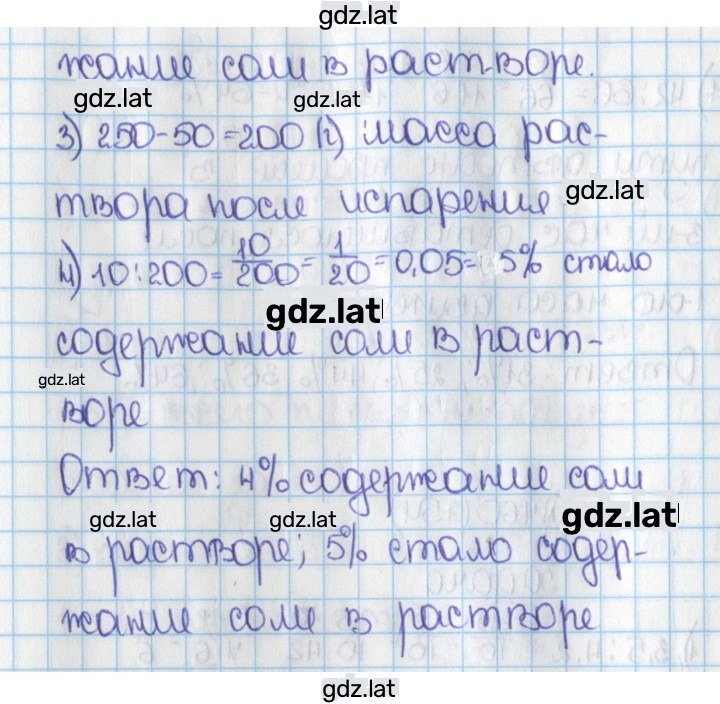 gdz.lat
жание соли в растворе.
gdz.lat
gdz.lat
3) 250-50=200 (г) масса рас-
твора после испарения
gdz.lat
4) 10:200= 10/200 = 1/20 = 0,05= 5% стало
gdz.lat
содержание соли в раст-
gdz.lat
воре
Ответ: 4% содержание соли
gdz.lat
gdz.lat
gdz.lat
в растворе; 5% стало содер-
жание соли в растворе
gdz.lat